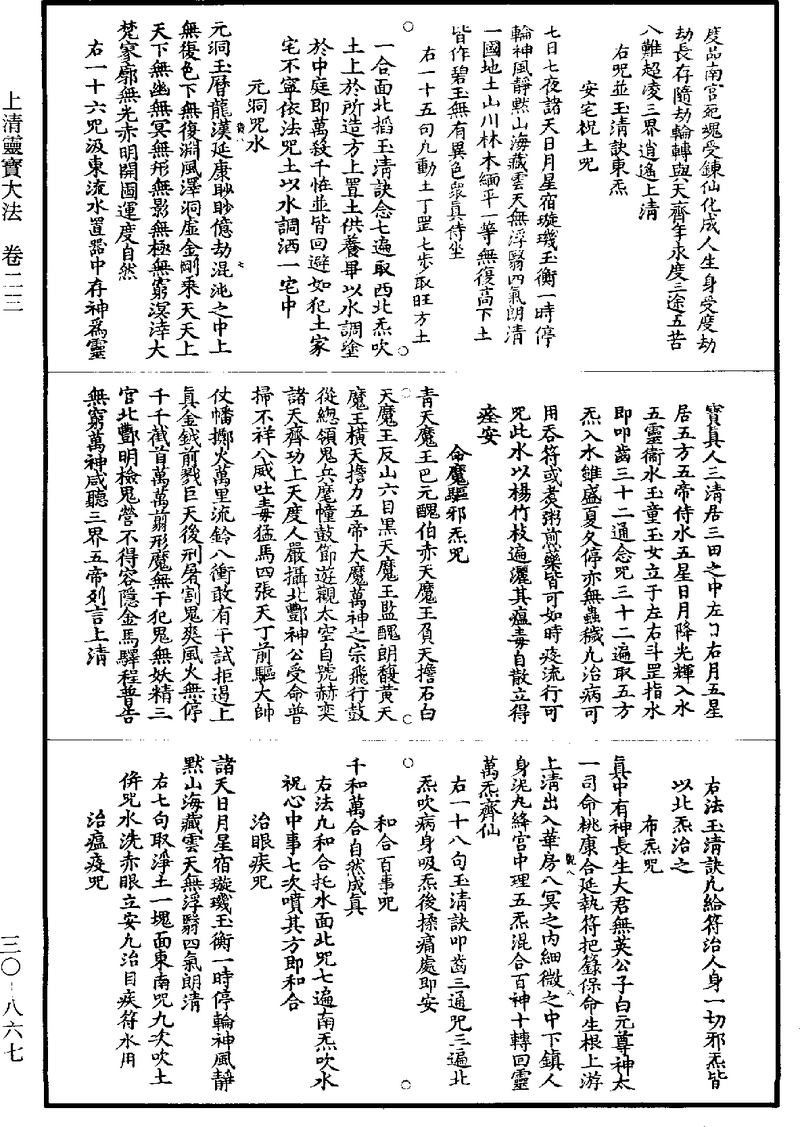 度品南宮死魂受鍊仙化成人生身受度劫
劫長存隨劫輪轉與天齊年永度三途五苦
八難超凌三界逍遙上清
右咒並玉清訣東炁
安宅祝土咒
七日七夜諸天日月星宿璇璣玉衡一時停
輪神風靜默山海藏雲天無浮翳四氣朗清
一國地土山川林木緬平一等無復高下土
皆作碧玉無有異色眾真侍坐
右一十五句凡動土丁罡七步取旺方土
一合面北掐玉清訣念七遍取西北炁吹
土上於所造方上置土供養畢以水調塗
於中庭即萬殺千怪並皆回避如犯土家
宅不寧依法咒土以水調洒一宅中
元洞咒水
元洞玉曆龍漢延康眇眇億劫混沌之中上
無復色下無復淵風澤洞虛金剛乘天天上
天下無幽無冥無形無影無極無窮溟涬大
梵寥廓無光赤明開圖運度自然
右一十六咒汲東流水置器中存神為靈
寶真人三清居三田之中左日右月五星
居五方五帝侍水五星日月降光輝入水
五靈衛水玉童玉女立于左右斗罡指水
即叩齒三十二通念咒三十二遍取五方
炁入水雖盛夏久停亦無蟲穢凡治病可
用吞符或煑粥煎藥皆可如時疫流行可
咒此水以楊竹枝遍灑其瘟毒自散立得
痊安
命魔驅邪炁咒
青天魔王巴元醜伯赤天魔王負天擔石白
天魔王反山六目黑天魔王監醜朗馥黃天
魔王橫天擔力五帝大魔萬神之宗飛行鼓
從總領鬼兵麾幢鼓節遊觀太空自號赫奕
諸天齊功上天度人嚴攝北酆神公受命普
掃不祥八威吐毒猛馬四張天丁前驅大帥
仗幡擲火萬里流鈴八衝敢有干試拒遏上
真金鉞前戮巨天後刑屠割鬼爽風火無停
千千截首萬萬翦形魔無干犯鬼無妖精三
官北酆明檢鬼營不得容隱金馬驛程普告
無窮萬神咸聽三界五帝列言上清
右法玉清訣凡給符治人身一切邪炁皆
以北炁治之
布炁咒
真中有神長生大君無英公子白元尊神太
一司命桃康合延執符把籙保命生根上游
上清出入華房八冥之內細微之中下鎮人
身泥丸絳宮中理五炁混合百神十轉回靈
萬炁齊仙
右一十八句玉清訣叩齒三通咒三遍北
炁吹病身吸炁後揉痛處即安
和合百事咒
千和萬合自然成真
右法凡和合托水面北咒七遍南炁吹水
祝心中事七次噴其方即和合
治眼疾咒
諸天日月星宿璇璣玉衡一時停輪神風靜
默山海藏雲天無浮翳四氣朗清
右七句取淨土一塊面東南咒九次吹土
併咒水洗赤眼立安凡治目疾符水用
治瘟疫咒
上清靈寶大法　卷二三
三〇－八六七